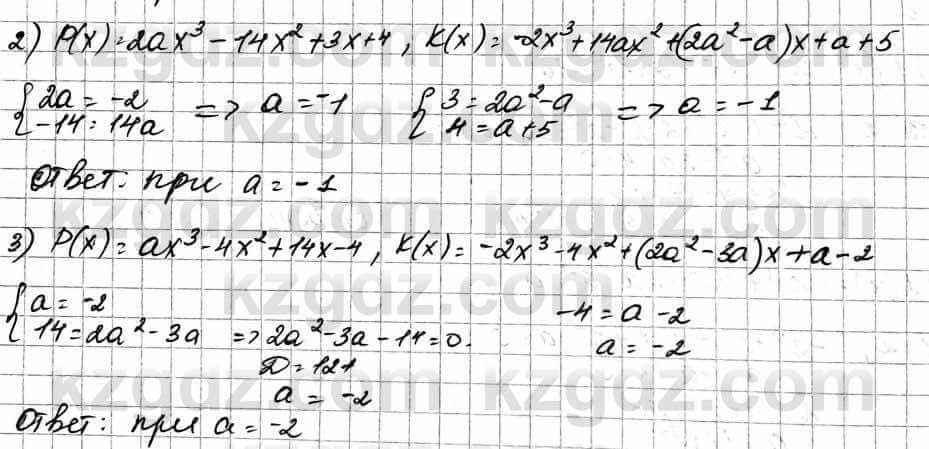 2) P(x) = 2ax³ - 14x² + 3x + 4, K(x) = -2x³ + 14ax² + (2a² - a)x + a + 5
{ 2a = -2
-14 = 14a => a = -1 { 3 = 2a² - a
4 = a + 5 => a = -1
Ответ: при a = -1
3) P(x) = ax³ - 4x² + 14x - 4, K(x) = -2x³ - 4x² + (2a² - 3a)x + a - 2
{ a = -2
14 = 2a² - 3a => 2a² - 3a - 14 = 0.
D = 121
a = -2
-4 = a - 2
a = -2
Ответ: при a = -2
kzgdz.com